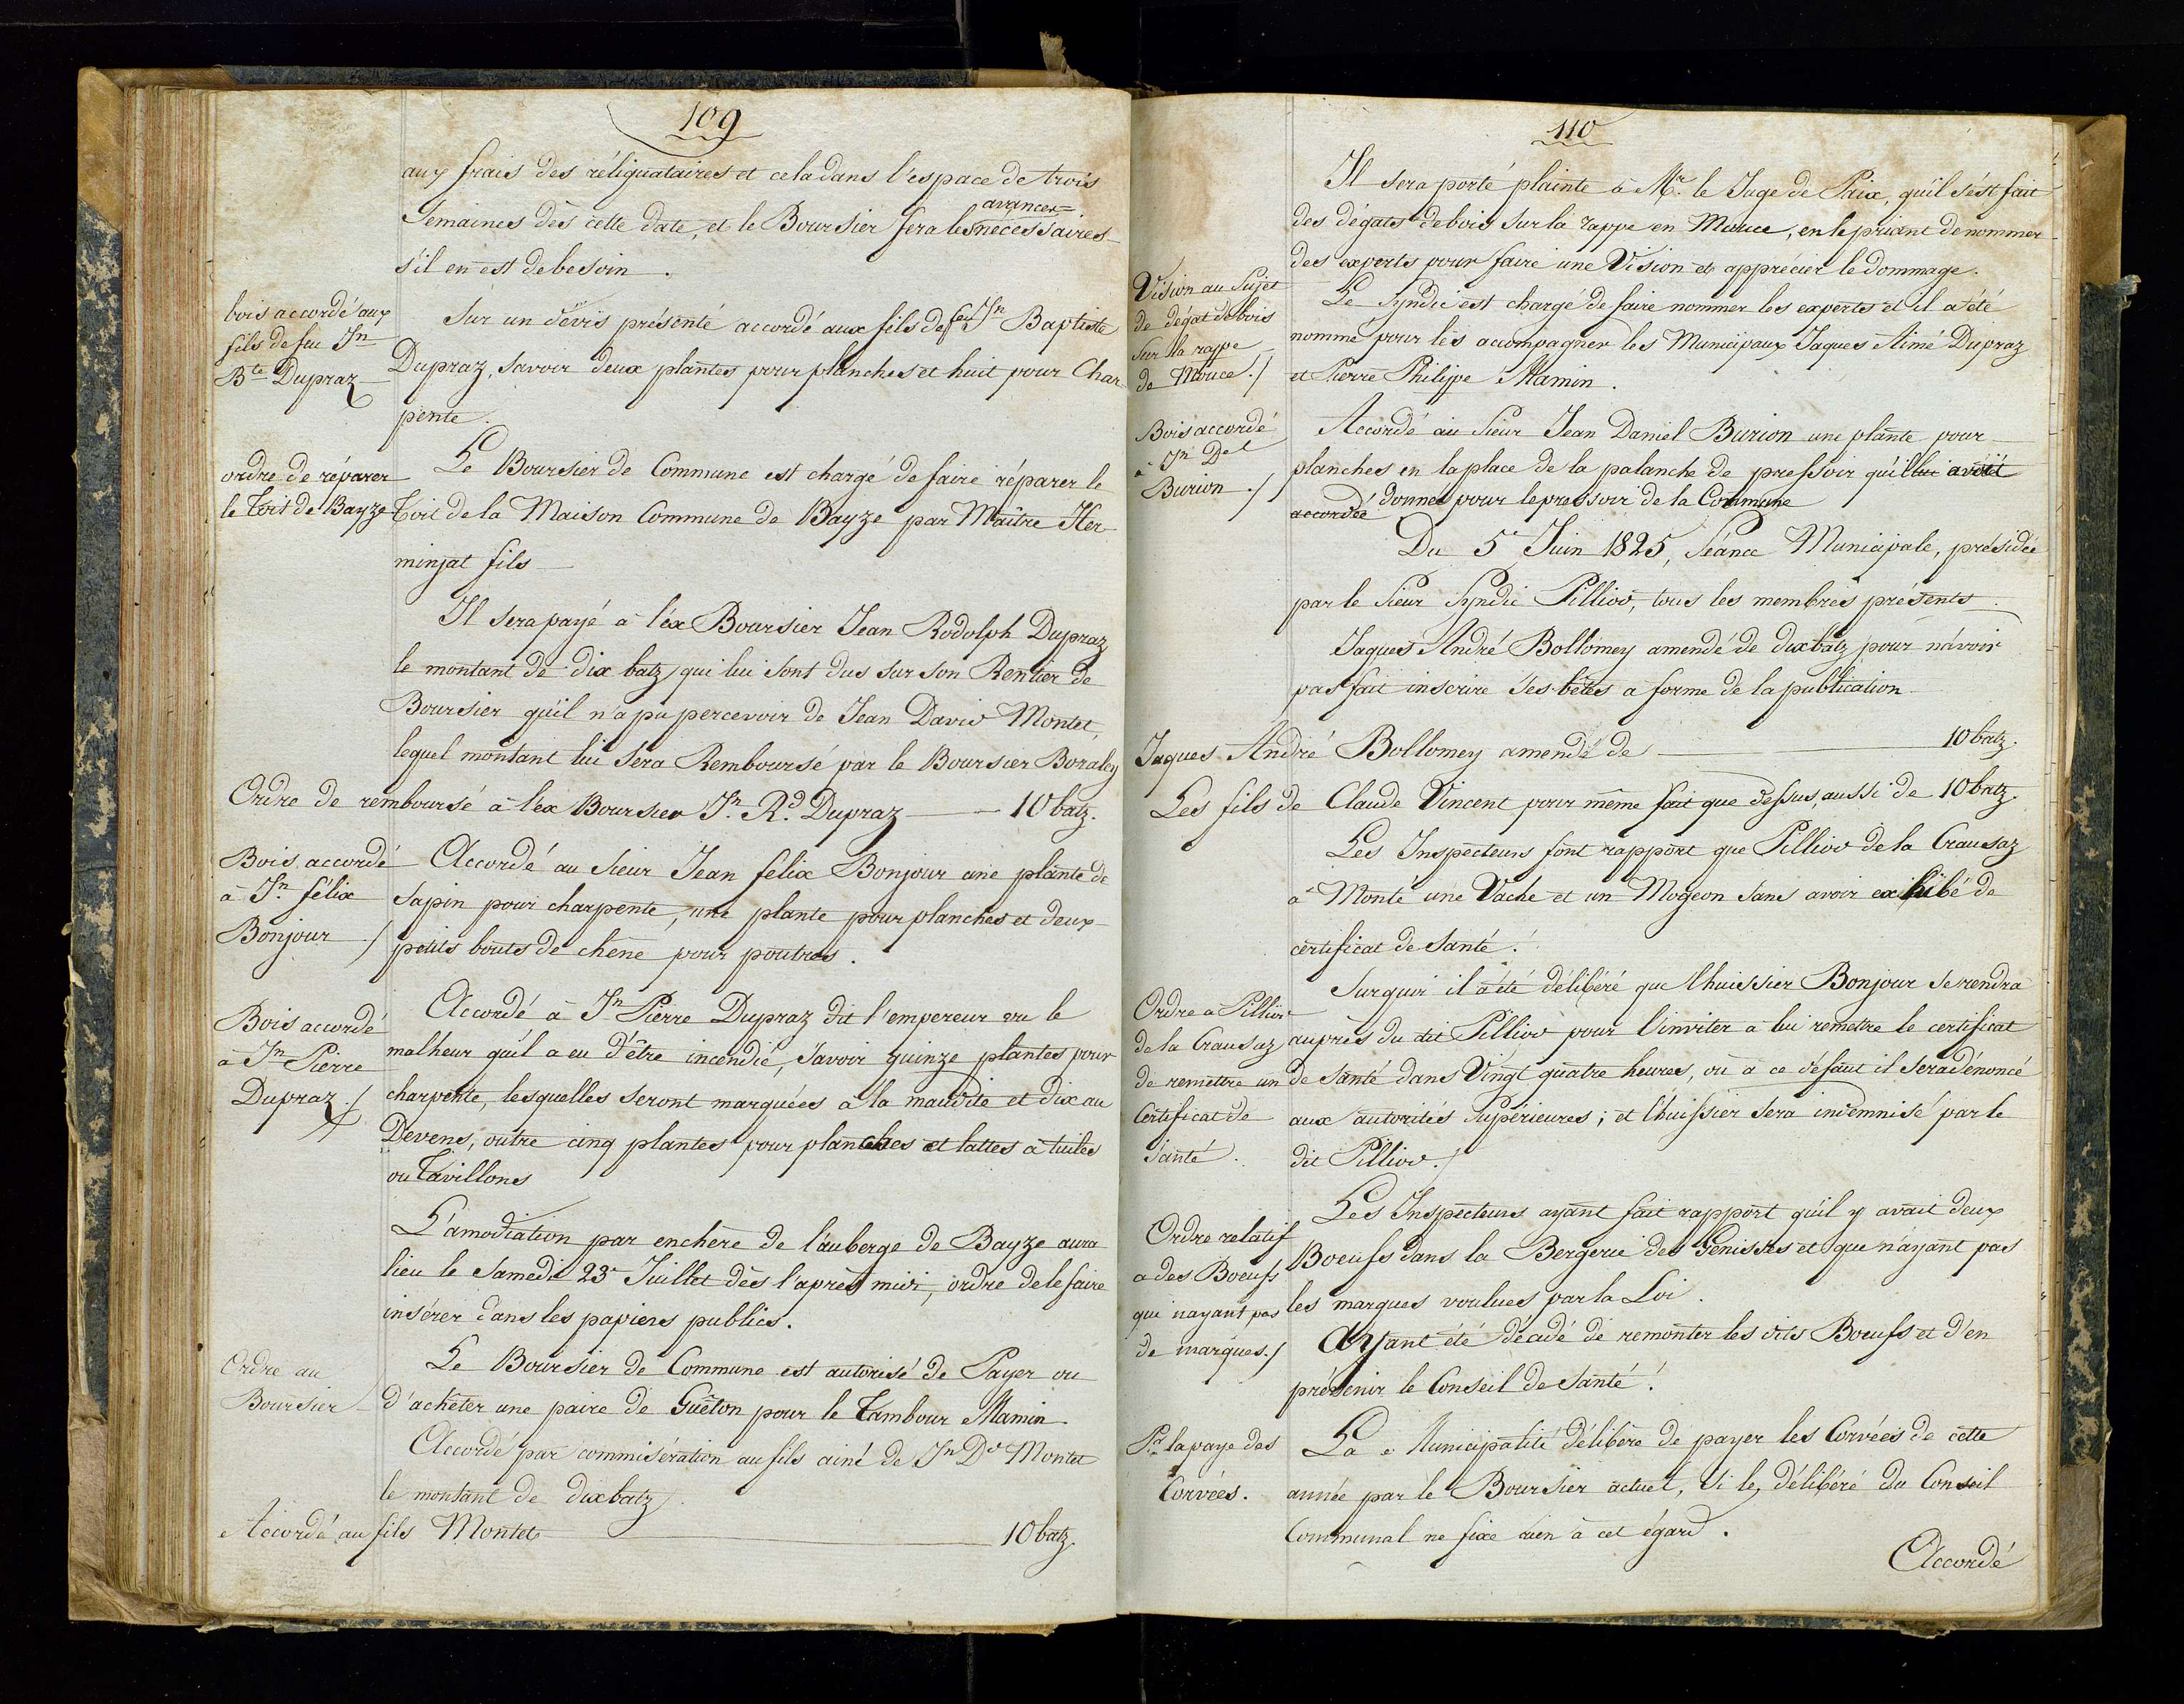 109
aux frais des réliquataires et cela dans l'espace de trois
avances=
Semaines dès cette date, et le Boursier fera les nécessaires
s'il en est de besoin.
bois accordé aux
fils de feu Jn
Bte Dupraz
Sur un dévis présenté accordé aux fils de feu Jn Baptiste
Dupraz, savoir deux plantes pour planches et huit pour Char-
pente.
ordre de réparer
le Toit de Bayze
Le Boursier de Commune est chargé de faire réparer le
Toit de la Maison Commune de Bayze par Maître Her-
minjat fils
Il sera payé à l'éx Boursier Jean Rodolph Dupraz
le montant de dix batz, qui lui sont dus sur son Rentier de
Boursier qu'il n'a pu percevoir de Jean David Montet,
lequel montant lui sera Remboursé par le Boursier Boraley
Ordre de remboursé à l'ex Boursier Jn. Rd. Dupraz — 10 batz.
Bois accordé
à Jn. félix
Bonjour ./
Accordé au Sieur Jean felix Bonjour une plante de
sapin pour charpente, une plante pour planches et deux
petits bouts de chêne pour poutres.
Bois accordé
à Jn Pierre
Dupraz ./
Accordé à Jn Pierre Dupraz dit l'empereur vu le
malheur qu'il a eu d'être incendié, savoir quinze plantes pour
charpente, lesquelles seront marquées à la maudite et dix au
Devens, outre cinq plantes pour planches et lattes à tuiles
ou Tavillons
L'amodiation par enchère de l'auberge de Bayze aura
lieu le Samedi 23e Juillet dès l'après midi, ordre de le faire
insérer dans les papiers publics.
Ordre au
Boursier
Le Boursier de Commune est autorisé de Payer ou
d'achêter une paire de Guêton pour le Tambour Mamin.
Accordé par commisération au fils ainé de Jn Dd Montet
le montant de dix batz.
Accordé au fils Montet — 10 batz.
110
Il sera porté plainte à Mr. le Juge de Paix, qu'il s'est fait
des dégats de bois sur la rappe en Mouce, en le priant de nommer
des experts pour faire une Vision et apprécier le dommage.
Vision au Sujet
de dégat de bois
sur la rappe
de Mouce ./
Le Syndic est chargé de faire nommer les experts et il a été
nommé pour les accompagner les Municipaux Jaques Aimé Dupraz
et Pierre Philippe Mamin.
Bois accordé
à Jn Del
Burion ./
Accordé au Sieur Jean Daniel Burion une plante pour
planches en la place de la palanche de pressoir qu'il lui avoit
accordée donnée pour le pressoir de la Commune
Du 5e Juin 1825, Séance Municipale, présidée
par le Sieur Syndic Pilliod, tous les membres présents
Jaques André Bollomey amendé de dix batz pour n'avoir
pas fait inscrire ses bêtes a forme de la publication
Jaques André Bollomey amendé de — 10 batz.
Les fils de Claude Vincent pour même fait que dessus, aussi de 10 batz.
Les Inspecteurs font rapport que Pilliod de la Crausaz
a Monté une Vache et un Mogeon sans avoir exhibé de
certificat de Santé.
Ordre à Pilliod
de la Crausaz
de remettre un
Certificat de
Santé.
Sur quoi il a été délibéré que l'huissier Bonjour se rendra
auprès du dit Pilliod pour l'inviter à lui remettre le certificat
de Santé dans Vingt quatre heures, ou à ce défaut il sera dénoncé
aux autorités Supérieures; et l'huissier sera indemnisé par le
dit Pilliod ./
Ordre relatif
a des Boeufs
qui n'ayant pas
de marques ./
Les Inspecteurs ayant fait rapport qu'il y avait deux
Boeufs dans la Bergerie des Genisses et que n'ayant pas
les marques voulues par la Loi.
Ayant été décidé de remonter les dits Boeufs et d'en
prévenir le Conseil de Santé.
Pr la paye des
Corvées.
La Municipalité délibère de payer les Corvées de cette
année par le Boursier actuel, si le délibéré du Conseil
Communal ne fixe rien à cet égard.
Accordé